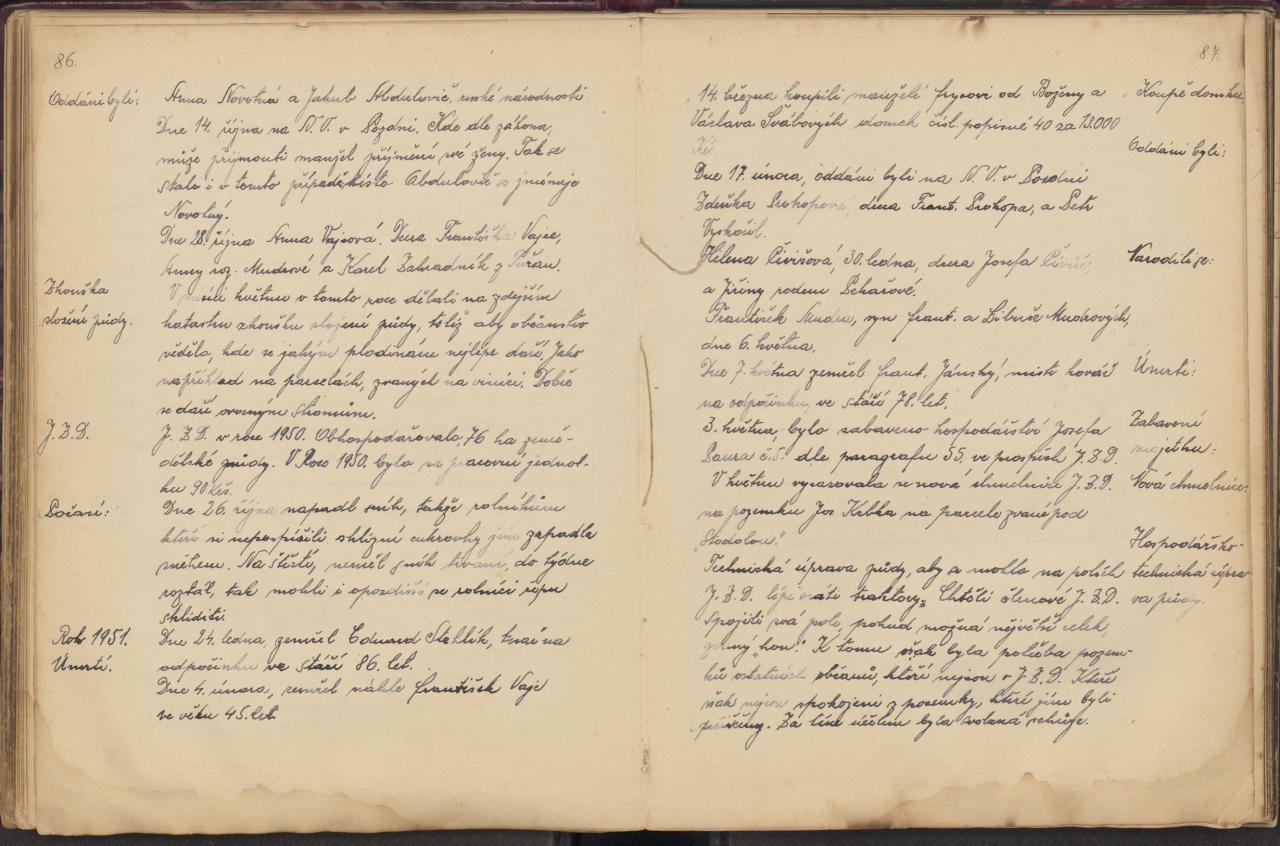 86.
Oddáni byli:
Anna Novotná a Jakub Abdulovič, ruské národnosti
Dne 14. října na N. V. v Pozdni. Kde dle zákona,
může přijmouti manžel příjmění své ženy. Tak se
stalo i v tomto případě, místo Abdulovič se jmenuje
Novotný.
Dne 28. října Anna Vajcová. Dcera Františka Vajce,
Anny roz. Mudrové a Karel Zahradník z Tuřan.
Zkouška
složení půdy.
V měsíci květnu v tomto roce dělali na zdejším
katastru zkoušku složení půdy, totiž aby občanstvo
vědělo, kde se jakým plodinám nejlépe daří. Jako
například na parcelách, zvaných na vinici. Dobře
se daří ovocným stromům.
J. Z. D.
J. Z. D. v roce 1950. Obhospodařovalo, 76 ha země-
dělské půdy. V Roce 1950. bylo na pracovní jednot-
ku 90 Kčs.
Počasí:
Dne 26. října napadl sníh, takže rolníkům
kteří si nepospíšili sklizní cukrovky jim zapadla
sněhem. Na štěstí, neměl sníh trvání, do týdne
roztál, tak mohli i opozdivší se rolníci řepu
skliditi.
Rok 1951.
Úmrtí.
Dne 24. ledna, zemřel Eduard Stehlík, tesař na
odpočinku ve stáří 86. let.
Dne 4. února, zemřel náhle František Vajc
ve věku 45. let.
87.
14. března koupili manželé frycovi od Boženy a
Koupě domku
Václava Švábových domek čísl. popisné 40 za 13.000
Kč.
Oddáni byli:
Dne 17. února, oddáni byli na N. V. v Pozdni
Zdeňka Prokopova, dcera Frant. Prokopa, a Petr
Vyskočil.
Narodili se:
Helena Čivišová, 30. ledna, dcera Josefa Čiviše,
a Jiřiny rodem Pekařové.
František Mudra, syn frant. a Libuše Mudrových,
dne 6. května.
Úmrtí:
Dne 7. května zemřel frant. Jánský, mistr kovář
na odpočinku, ve stáří 78. let.
Zabavení
majetku:
3. května, bylo zabaveno hospodářství Josefa
Paura č. 5. dle paragrafu 55. ve prospěch J. Z. D.
Nová chmelnice:
V květnu vysazovala se nová chmelnice J. Z. D.
na pozemku Jos. Krbka na parcele zvané pod
„Stodolou."
Hospodářsko-
technická úpra
va půdy.
Technická úprava půdy, aby a mohlo na polích
J. Z. D. lépe orati traktory, Chtěli členové J. Z. D.
Spojiti svá pole, pokud možná největší celek,
zvaný „hon." K tomu však byla potřeba pozem-
ků ostatních občanů, kteří nejsou v J. Z. D. Kteří
však nejsou spokojeni z pozemky, které jim byli
přiděleny. Za tím účelem byla svolaná schůze.